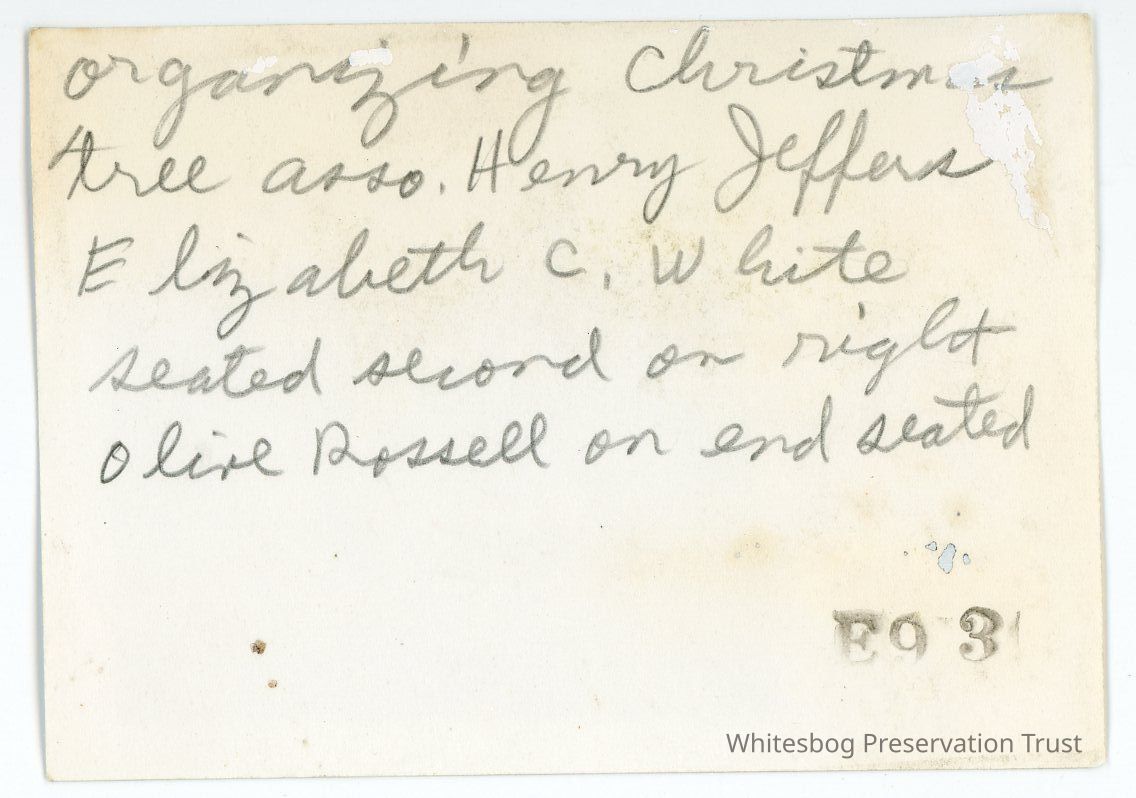 organizing Christmas
tree asso. Henry Jeffers
Elizabeth C. White
seated second on right
Olive Rossell on end seated
E93
Whitesbog Preservation Trust